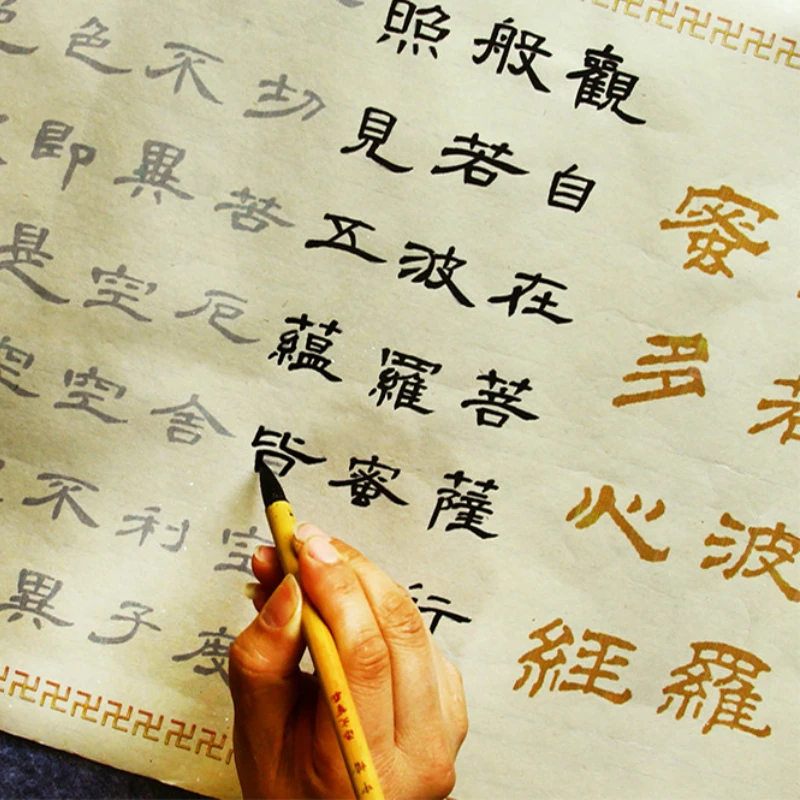 若波羅
蜜多心經
觀自在菩薩行
般若波羅蜜
照見五蘊皆空度
切苦厄舍利子
不異空空不異
色即是空